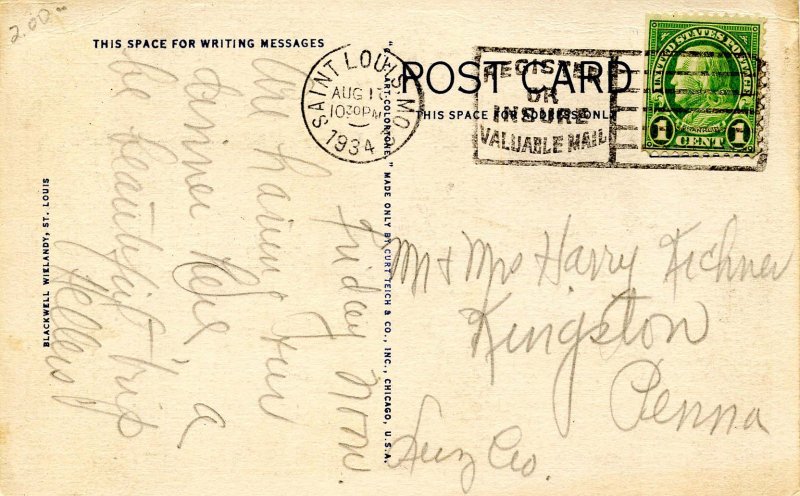 2.00
THIS SPACE FOR WRITING MESSAGES
POST CARD
THIS SPACE FOR ADDRESS ONLY
SAINT LOUIS, MO.
AUG 17
1030PM
1934
REGISTER
OR
INSURE
VALUABLE MAIL
UNITED STATES POSTAGE
FRANKLIN
1 1
CENT
Friday Noon
Are having our
dinner here
a beautiful trip
Hellers
Mr & Mrs Harry Kichner
Kingston
Penna
Luz Co.
BLACKWELL WIELANDY, ST. LOUIS
"C.T. ART-COLORTONE" MADE ONLY BY CURT TEICH & CO., INC., CHICAGO, U.S.A.